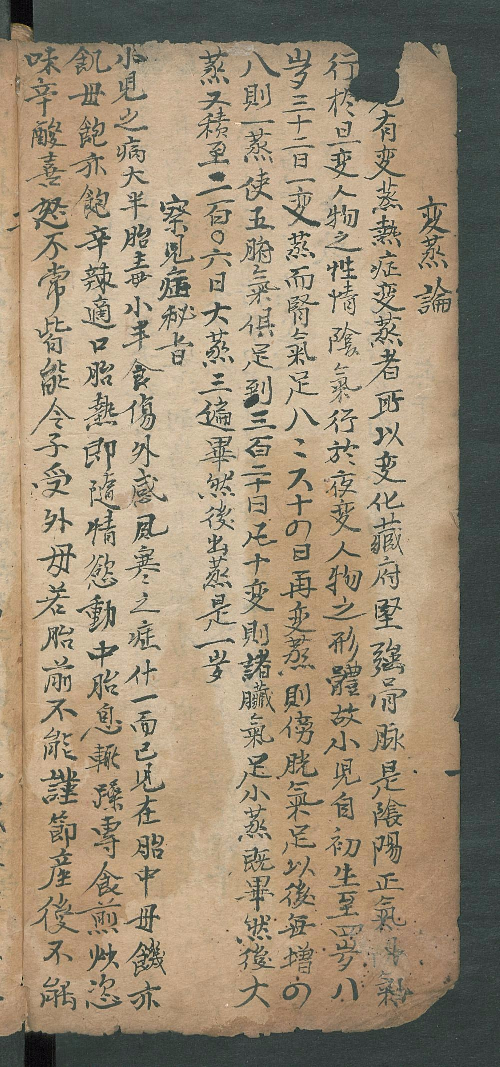 变蒸論
兒有变蒸熱症变蒸者所以变化藏府堅強骨脉是陰陽正氣
行於旦变人物之性情陰氣行於夜变人物之形體故小児自初生至 岁八
岁三十二日一变蒸而腎氣足八〻六十四日再变蒸則傍胱氣足以後每增四
八則一蒸使五腑氣俱足到三百二十日凡十变則諸臟氣足小蒸既畢然後大
蒸又積至二百〇六日大蒸三遍畢然後出蒸是一岁
察児症秘旨
小児之病大半胎毒小半食傷外感風寒之症什一而已児在胎中母饑亦
飢母飽亦飽辛辣適口胎熱即隨情慾動中胎息輒躁專食煎炒恣
味辛酸喜怒不常皆能令子受外母若胎前不能謹節産後不能